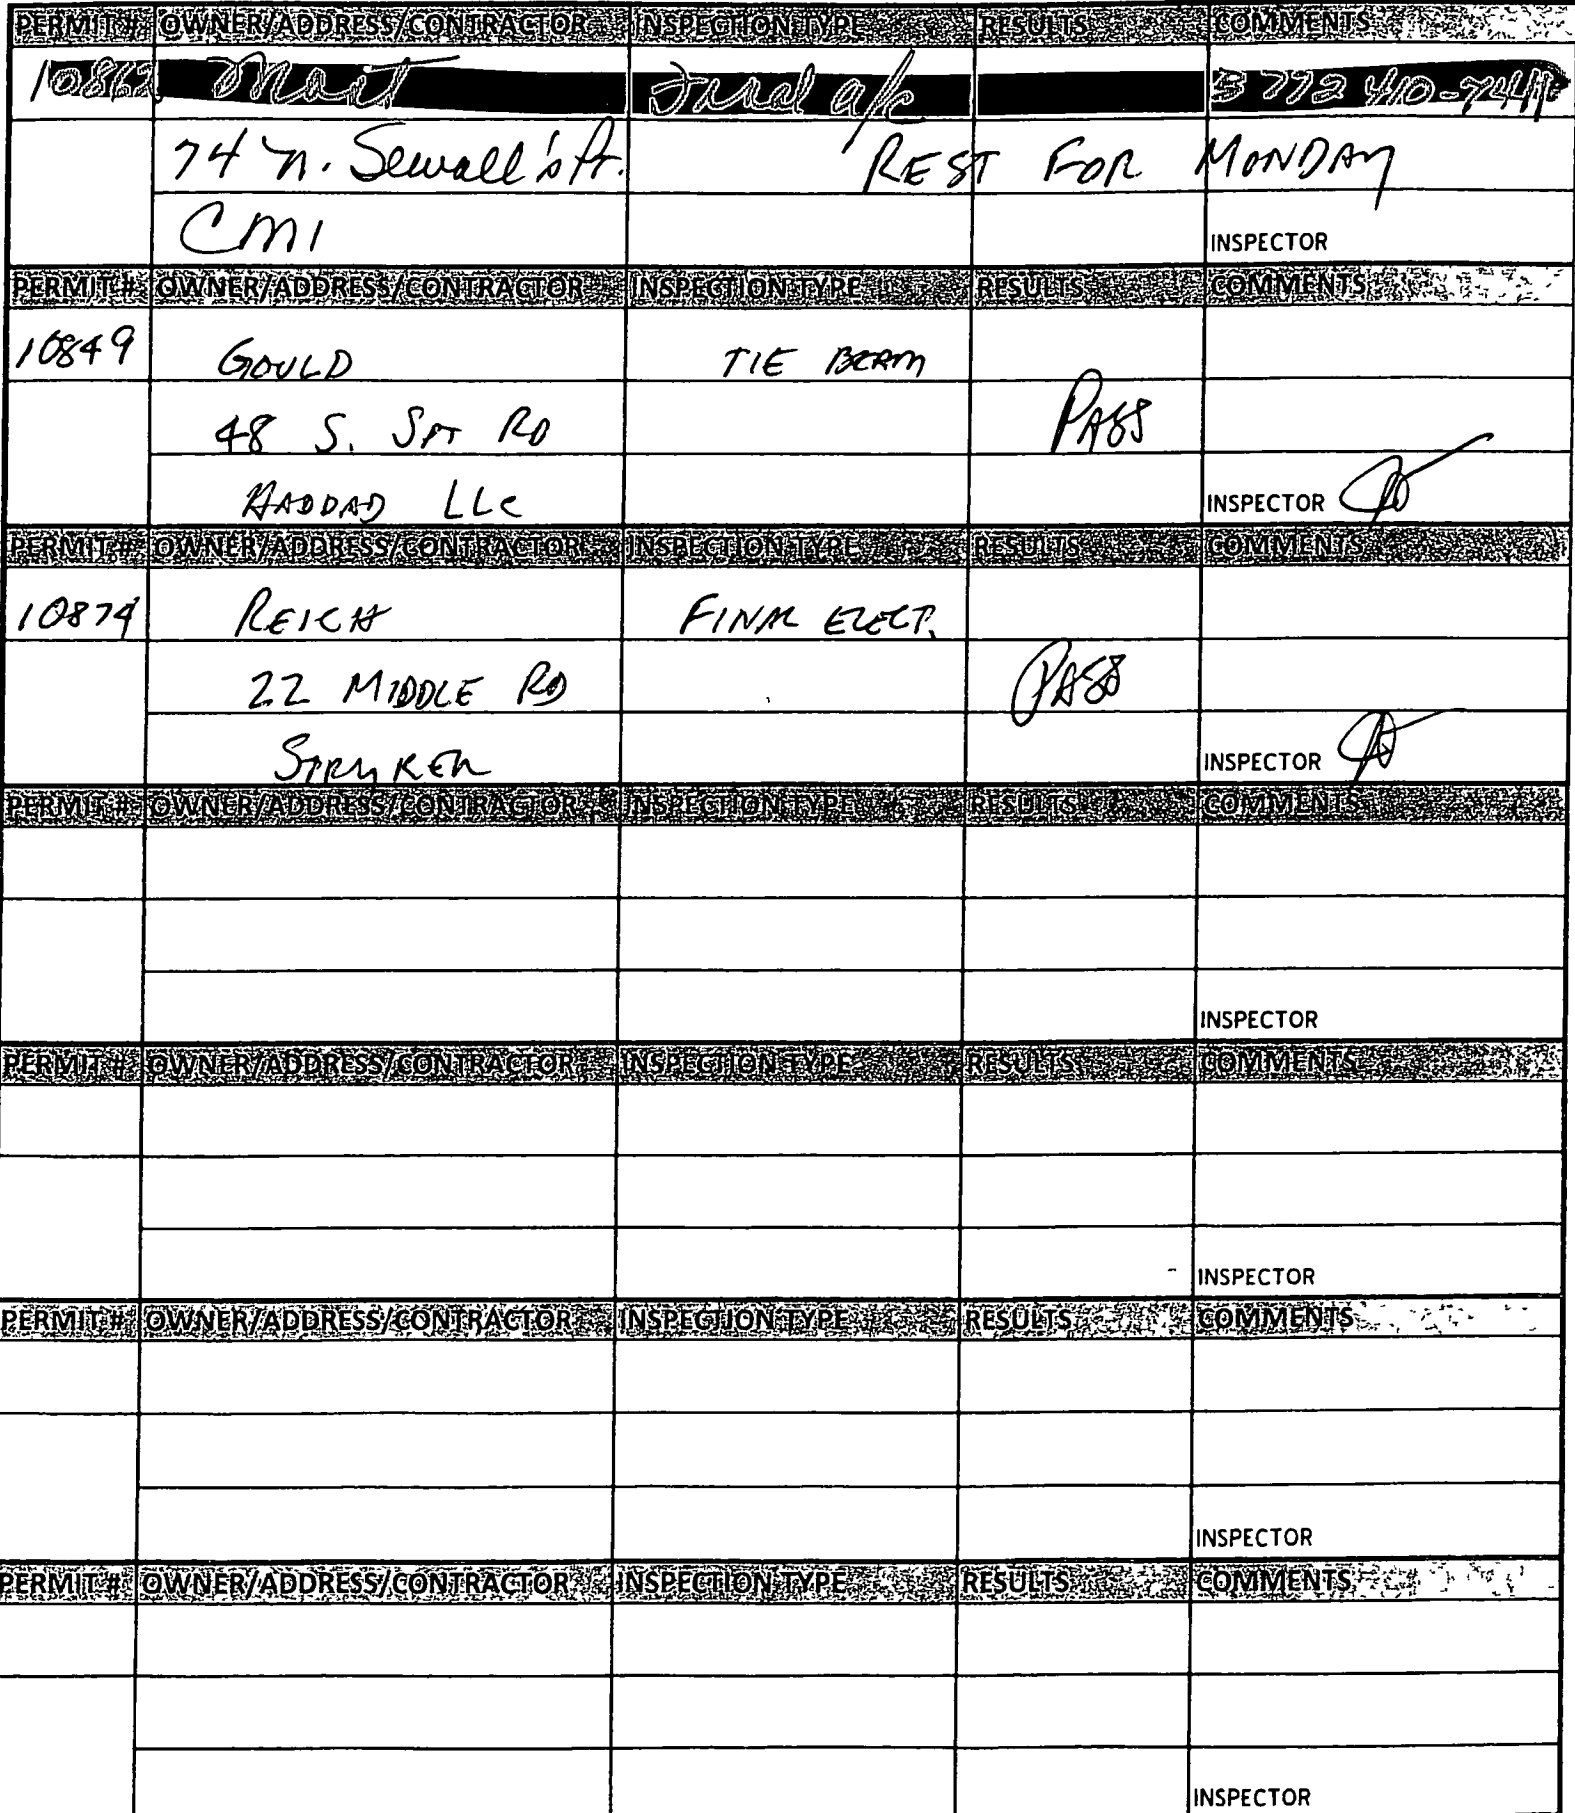 PERMIT # OWNER/ADDRESS/CONTRACTOR INSPECTION TYPE RESULTS COMMENTS
Final a/c 772
74 N. Sewall's Pt. REST FOR MONDAY
CM1 INSPECTOR
PERMIT # OWNER/ADDRESS/CONTRACTOR INSPECTION TYPE RESULTS COMMENTS
10849 GOULD TIE BEAM
48 S. SPT RD PASS
HADDAD LLC INSPECTOR
PERMIT # OWNER/ADDRESS/CONTRACTOR INSPECTION TYPE RESULTS COMMENTS
10874 REICH FINAL ELECT.
22 MIDDLE RD PASS
STRYKER INSPECTOR
PERMIT # OWNER/ADDRESS/CONTRACTOR INSPECTION TYPE RESULTS COMMENTS
INSPECTOR
PERMIT # OWNER/ADDRESS/CONTRACTOR INSPECTION TYPE RESULTS COMMENTS
INSPECTOR
PERMIT # OWNER/ADDRESS/CONTRACTOR INSPECTION TYPE RESULTS COMMENTS
INSPECTOR
PERMIT # OWNER/ADDRESS/CONTRACTOR INSPECTION TYPE RESULTS COMMENTS
INSPECTOR